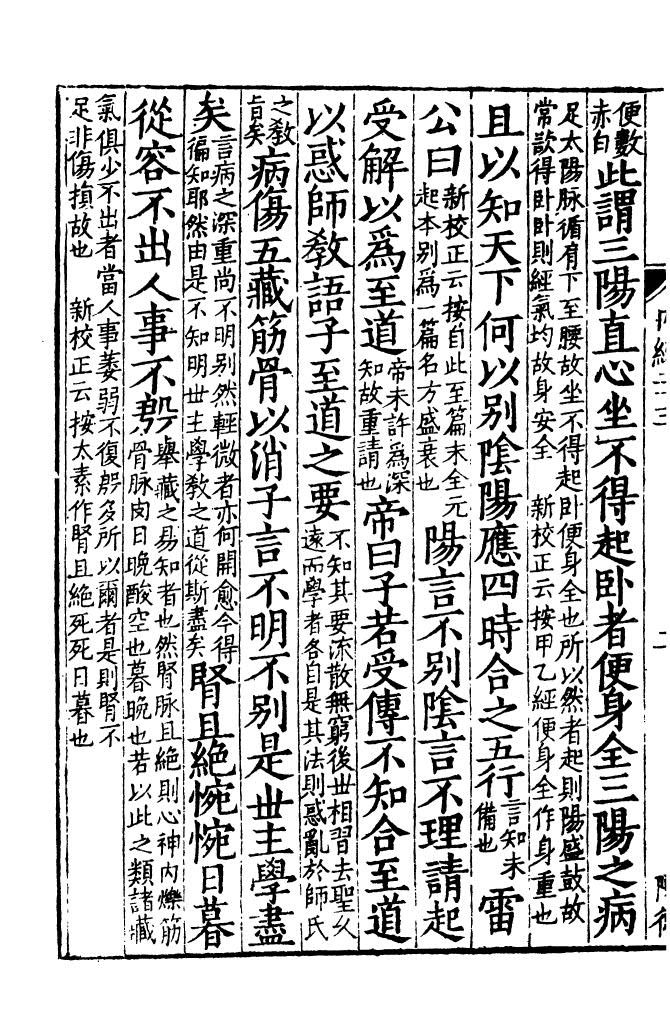 便數赤白此謂三陽直心坐不得起卧者便身全三陽之病
足太陽脉循肩下至腰故坐不得起卧便身全也所以然者起則陽盛鼓故
常欲得卧卧則經氣均故身安全　新校正云按甲乙經便身全作身重也
且以知天下何以別陰陽應四時合之五行言知未備也雷
公曰新校正云按自此至篇末全元起本別爲一篇名方盛衰也陽言不別陰言不理請起
受解以爲至道帝未許爲深知故重請也帝曰子若受傳不知合至道
以惑師教語子至道之要不知其要流散無窮後世相習去聖乆遠而學者各自是其法則惑亂於師氏
之教旨矣病傷五藏筋骨以消子言不明不別是世主學盡
矣言病之深重尚不明別然輕微者亦何開愈令得徧知耶然由是不知明世主學教之道從斯盡矣腎且絕惋惋日暮
從容不出人事不殷舉藏之易知者也然腎脉且絕則心神內爍筋骨脉肉日晚酸空也暮晚也若以此之類諸藏
氣俱少不出者當人事萎弱不復殷多所以爾者是則腎不
足非傷損故也　新校正云按太素作腎且絕死死日暮也